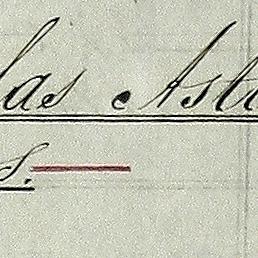 las Ast
s.